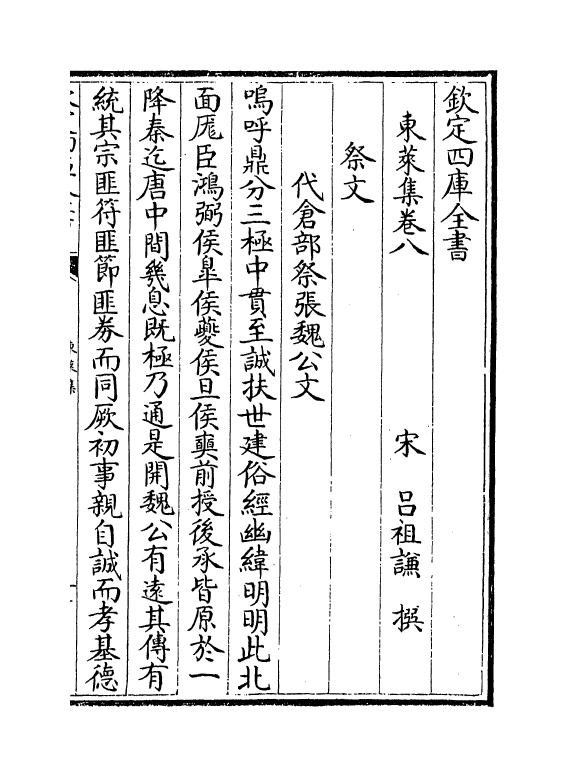 欽定四庫全書
東萊集卷八
宋 呂祖謙 撰
祭文
代倉部祭張魏公文
嗚呼鼎分三極中貫至誠扶世建俗經幽緯明明此北
面厖臣鴻弼侯臯侯夔侯旦侯奭前授後承皆原於一
降秦迄唐中間幾息既極乃通是開魏公有遠其傳有
統其宗匪符匪節匪券而同厥初事親自誠而孝基德
東萊集